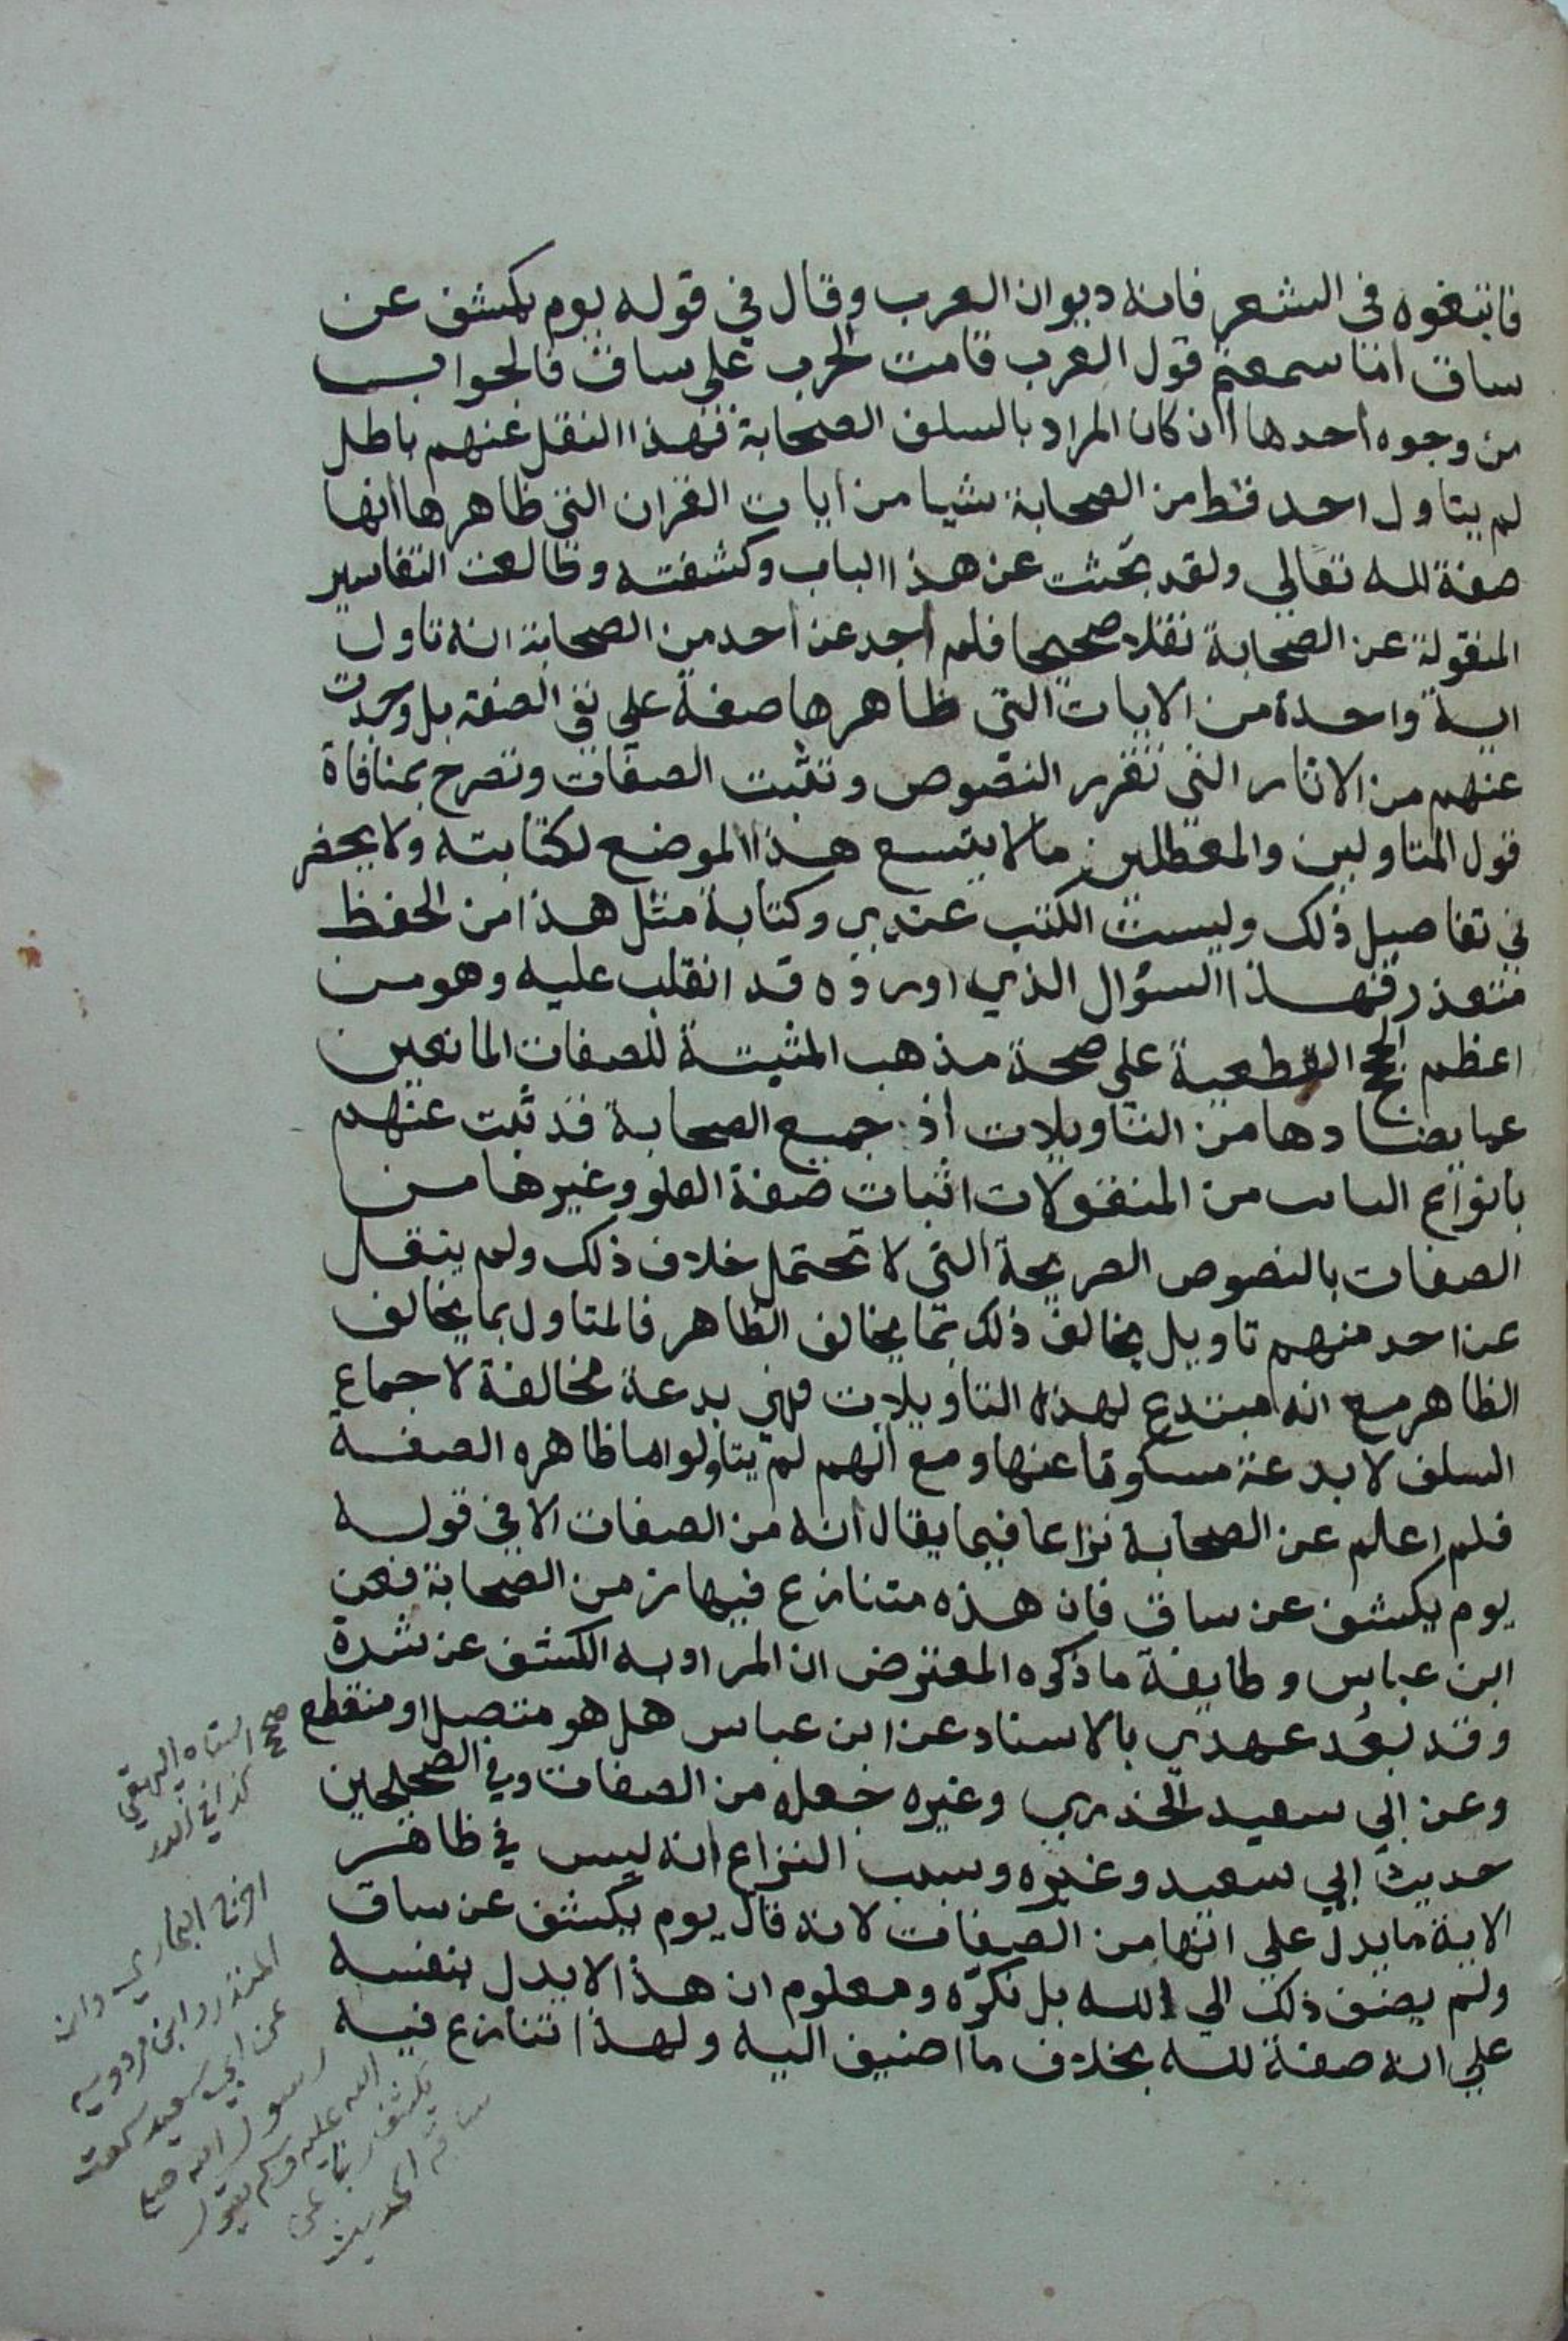 فابتغوه في الشعر فانه ديوان العرب وقال في قوله يوم يكشف عن
ساق اما سمعتم قول العرب قامت الحرب على ساق فالجواب
من وجوه احدها ان كان المراد بالسلف الصحابة فهذا النقل عنهم باطل
لم يتاول احد قط من الصحابة شيا من ايات القران التي ظاهرها انها
صفة لله تعالي ولقد بحثت عن هذا الباب وكشفته وطالعت التفاسير
المنقولة عن الصحابة نقلا صحيحا فلم اجد عن احد من الصحابة انه تاول
اية واحدة من الايات التي ظاهرها صفة علي نفي الصفة بل وجدت
عنهم من الاثار التي تقرر النصوص وتثبت الصفات وتصرح بمنافاة
قول المتاولين والمعطلين مالا يتسع هذا الموضع لكتابته ولا يحضر
ني تفاصيل ذلك وليست الكتب عندي وكتابة مثل هذا من الحفظ
متعذر فهذا السؤال الذي اوردوه قد انقلب عليه وهو من
اعظم الحجج القطعية علي صحة مذهب المثبتة للصفات المانعين
عما يضادها من التاويلات اذ جميع الصحابة قد ثبت عنهم
بانواع من المنقولات اثبات صفة العلو وغيرها من
الصفات بالنصوص الصريحة التي لا تحتمل خلاف ذلك ولم ينقل
عن احد منهم تاويل يخالف ذلك بما يخالف الظاهر فالمتاول بما يخالف
الظاهر مع انه مبتدع لهذه التاويلات فهي بدعة مخالفة لاجماع
السلف لا بدعة مسكوتا عنها ومع انهم لم يتاولوا ما ظاهره الصفة
فلم اعلم عن الصحابة نزاعا فيما يقال انه من الصفات الا في قوله
يوم يكشف عن ساق فان هذه متنازع فيها من الصحابة فعن
ابن عباس وطايفة ما ذكره المعترض ان المراد به الكشف عن شدة
وقد بعد عهدي بالاسناد عن ابن عباس هل هو متصل او منقطع
وعن ابي سعيد الخدري وغيره جعله من الصفات وفي الصحيحين
حديث ابي سعيد وغيره وسبب النزاع انه ليس في ظاهر
الاية ما يدل علي انها من الصفات لانه قال يوم يكشف عن ساق
ولم يضف ذلك الي الله بل نكره ومعلوم ان هذا لا يدل بنفسه
علي انه صفة لله بخلاف ما اضيف اليه ولهذا تنازع فيه
صحح اسناده البيهقي
كذا في
اخرج البخاري وابن
المنذر وابن مردويه
عن ابي سعيد سمعت
رسول الله صلى
الله عليه وسلم يقول
يكشف ربنا عن
ساقه الحديث